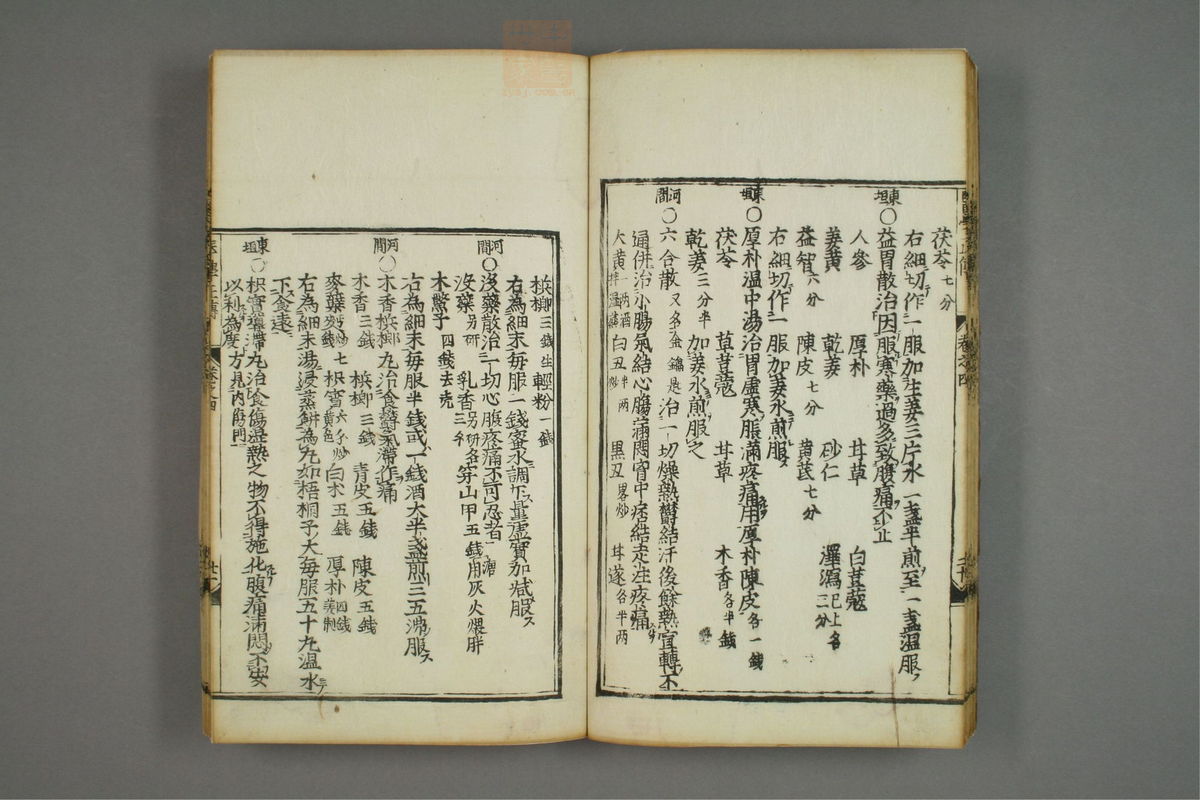 茯苓七分
右細切作一服加生姜三片水一盞半煎至一盞溫服
東垣○益胃散治因服寒藥過多致腹痛不止
人參 厚朴 甘草 白荳蔻
姜黄 乾姜 砂仁 澤瀉已上各三分
益智六分 陳皮七分 黄芪七分
右細切作一服加姜水煎服
東垣○厚朴溫中湯治胃虛寒脹滿疼痛用厚朴陳皮各一錢
茯苓 草荳蔻 甘草 木香各半錢
乾姜三分半 加姜水煎服之
河間○六合散又名金鑰匙治一切燥熱鬱結汗後餘熱宜轉不
通併治小腸氣結心腸滿悶胷中痞結走注疼痛
大黄一兩酒拌温 白丑半兩炒 黒丑畧炒 甘遂各半兩
梹榔三錢生 輕粉一錢
右為細末每服一錢蜜水調下量虛實加减服
河間○沒藥散治一切心腹疼痛不可忍者
沒藥另研 乳香另研各三分 穿山甲五錢用灰火煨胖
木鱉子四錢去売
右為細末每服半錢或一錢酒大半盞煎三五沸服
河間○木香梹榔丸治食鬱氣滯作痛
木香三錢 梹榔三錢 青皮五錢 陳皮五錢
麥蘖炒七錢 枳實六分炒黄色 白朮五錢 厚朴四錢姜制
右為細末湯浸蒸餅為丸如梧桐子大每服五十丸温水
下食遠
東垣○枳實導滯丸治食傷湿熱之物不得施化腹痛滿悶不安
以利為度方見内傷門
卷之四